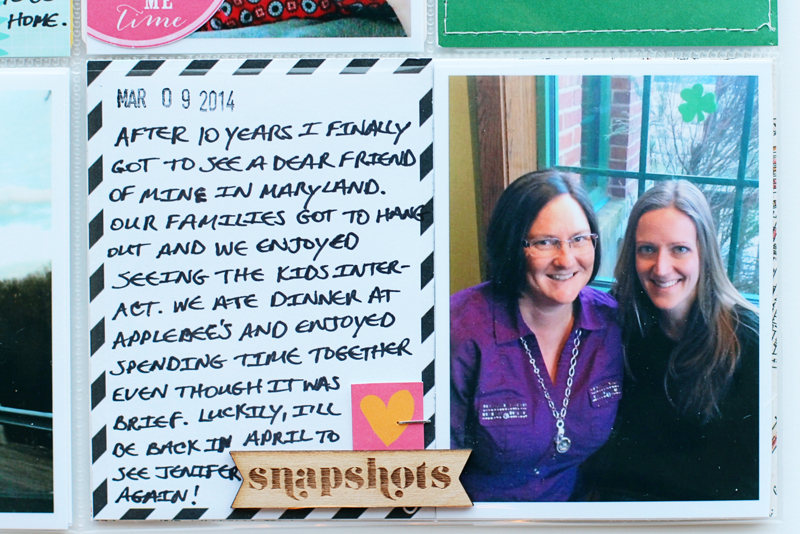 HOME.
ME
time
MAR 09 2014
AFTER 10 YEARS I FINALLY
GOT TO SEE A DEAR FRIEND
OF MINE IN MARYLAND.
OUR FAMILIES GOT TO HANG
OUT AND WE ENJOYED
SEEING THE KIDS INTER-
ACT. WE ATE DINNER AT
APPLEBEE'S AND ENJOYED
SPENDING TIME TOGETHER
EVEN THOUGH IT WAS
BRIEF. LUCKILY, I'LL
BE BACK IN APRIL TO
SEE JENIFER
AGAIN!
snapshots